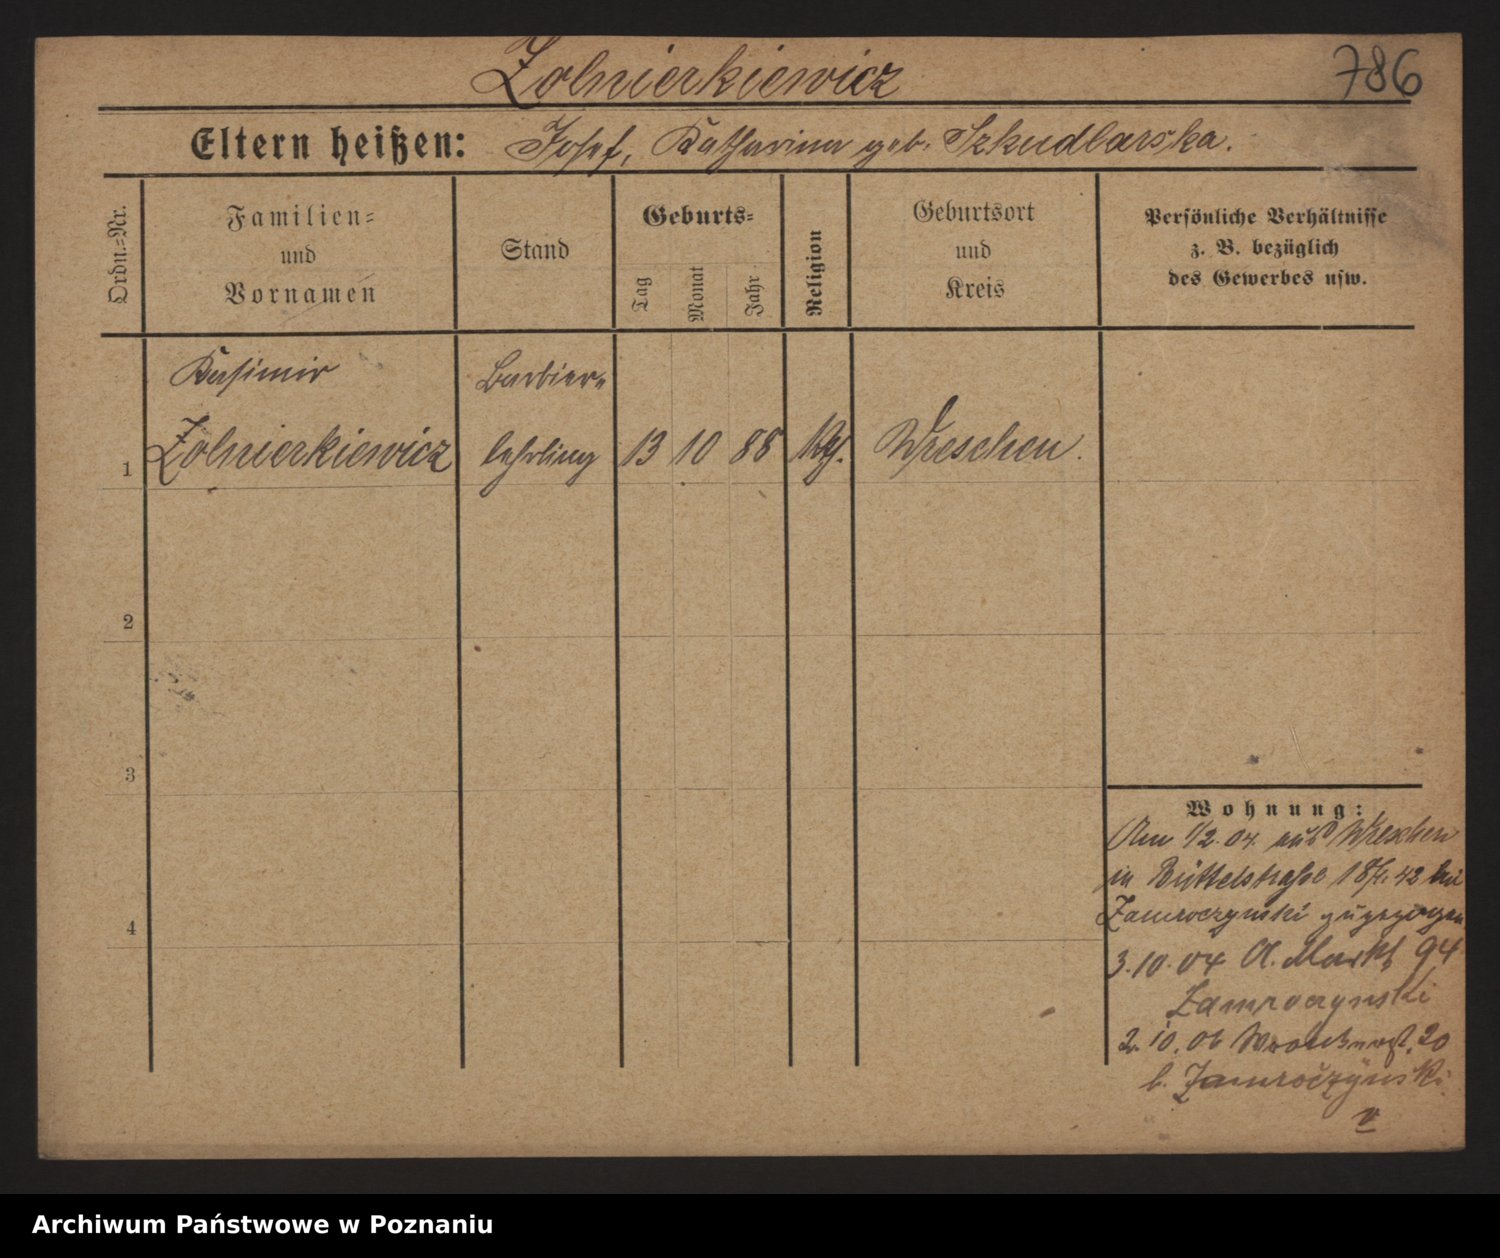 Zolnierkiewicz
786
Eltern heißen: Josef, Katharina geb. Szkudlarska.
Ordn.=Nr.
Familien=
und
Vornamen
Stand
Geburts=
Tag
Monat
Jahr
Religion
Geburtsort
und
Kreis
Persönliche Verhältnisse
z. B. bezüglich
des Gewerbes usw.
Kasimir Barbier=
1 Zolnierkiewicz lehrling 13 10 88 kth. Wreschen.
2
3
4
Wohnung:
Am 1/2. 04. aus Wreschen
in Büttelstraße 18 bei
Zamroczynski zugezogen
3.10.04 A. Markt 94
Zamroczynski
2. 10. 06 20
b. Zamroczynski
v
Archiwum Państwowe w Poznaniu